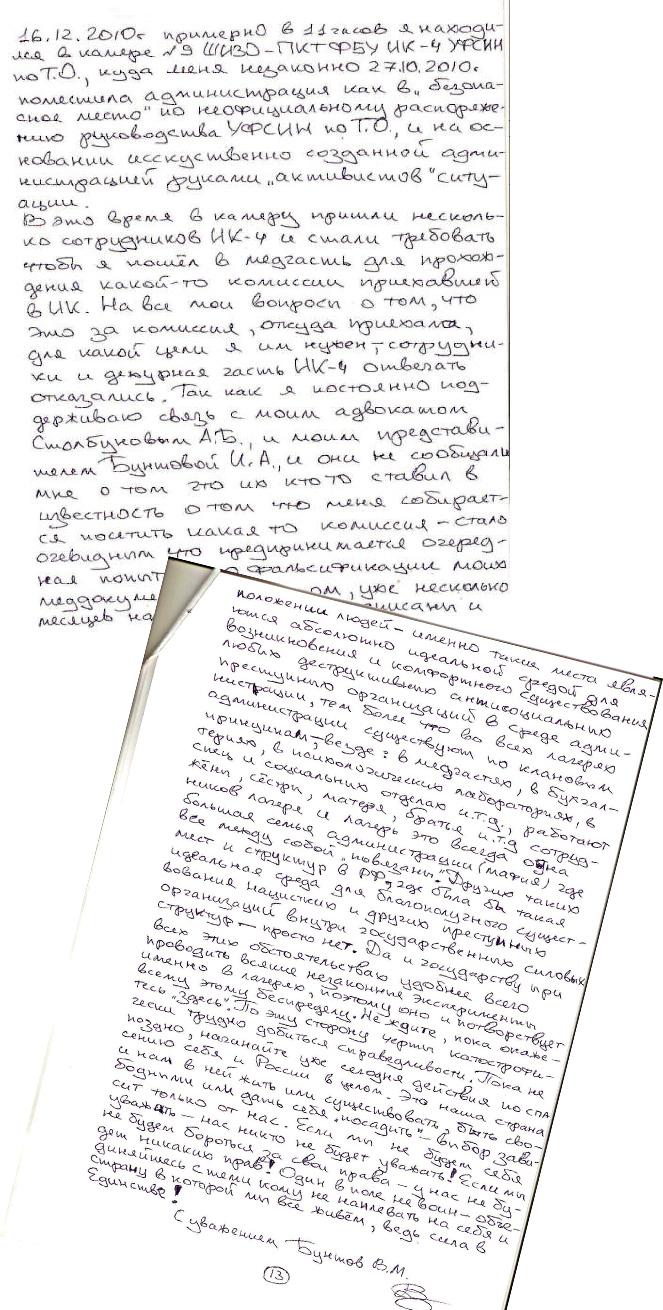 16.12.2010г примерно в 11 часов я находи-
лся в камере №9 ШИЗО-ПКТ ФБУ ИК-4 УФСИН
по Т.О., куда меня незаконно 27.10.2010г
поместила администрация как в „безопа-
сное место" по неофициальному распоряже-
нию руководства УФСИН по Т.О., и на ос-
новании исскуственно созданной адми-
нистрацией руками „активистов" ситу-
ации.
В это время в камеру пришли несколь-
ко сотрудников ИК-4 и стали требовать
чтобы я пошёл в медчасть для прохож-
дения какой-то комиссии приехавшей
в ИК. На все мои вопросы о том, что
это за комиссия, откуда приехала,
для какой цели я им нужен, - сотрудни-
ки и дежурная часть ИК-4 отвечать
отказались. Так как я постоянно под-
держиваю связь с моим адвокатом
Столбуновым А.Б., и моим представи-
телем Бунтовой И.А., и они не сообщали
мне о том что их кто то ставил в
известность о том что меня собирает-
ся посетить какая то комиссия - стало
очевидным что предпринимается очеред-
ная попыт о фальсификации моих
меддокуме ом, уже несколько
месяцев на писаны и
положении людей - именно такие места явля-
ются абсолютно идеальной средой для
возникновения и комфортного существования
любых деструктивных антисоциальных
преступных организаций в среде адми-
нистрации, тем более что во всех лагерях
администрации существуют по клановым
принципам, - везде: в медчастях, в бухгал-
териях, в психологических лабораториях, в
спец и социальных отделах и.т.д., работают
жёны, сёстры, матеря, братья и.т.д сотруд-
ников лагеря и лагерь это всегда одна
большая семья администрации (мафия) где
все между собой „повязаны". Других таких
мест и структур в РФ, где была бы такая
идеальная среда для благополучного сущест-
вования нацистких и других преступных
организаций внутри государственных силовых
структур - просто нет. Да и государству при
всех этих обстоятельствах удобнее всего
проводить всякие незаконные эксперименты
именно в лагерях, поэтому оно и потворствует
всему этому беспределу. Не ждите, пока окаже-
тесь „Здесь". По эту сторону черты катострофи-
чески трудно добиться справедливости. Пока не
поздно, начинайте уже сегодня действия по спа
сению себя и России в целом. Это наша страна
и нам в ней жить или существовать, быть сво-
бодными или дать себя „посадить" - выбор зави-
сит только от нас. Если мы не будем себя
уважать - нас никто не будет уважать! Если мы
не будем бороться за свои права - у нас не бу-
дет никаких прав! Один в поле не воин - объе-
диняйтесь с теми кому не наплевать на себя и
страну в которой мы все живём, ведь сила в
Единстве!
С уважением Бунтов В.М.
13